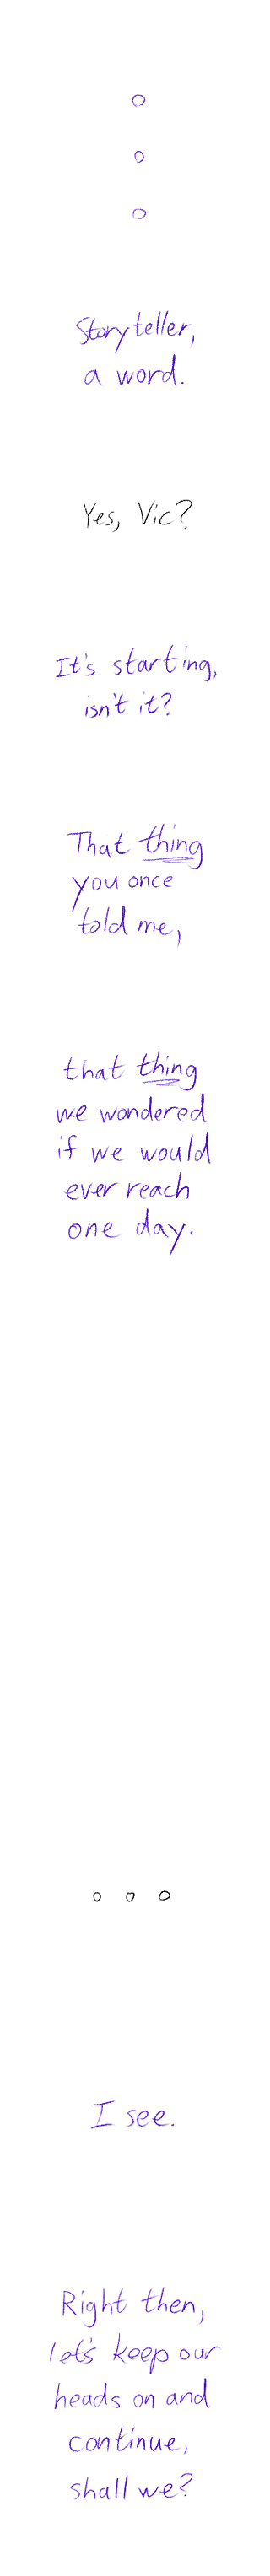 Storyteller,
a word.
Yes, Vic?
It's starting,
isn't it?
That thing
you once
told me,
that thing
we wondered
if we would
ever reach
one day.
I see.
Right then,
let's keep our
heads on and
continue,
shall we?